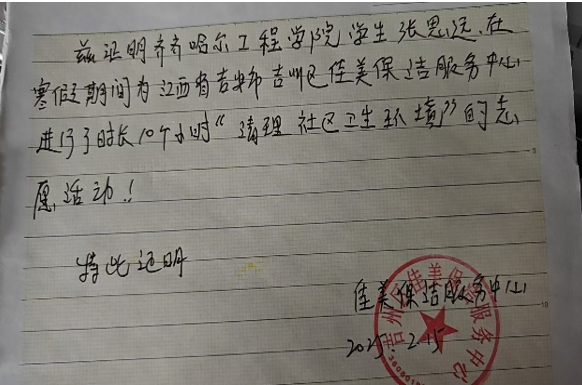 兹证明齐齐哈尔工程学院学生张思远在
寒假期间为江西省吉安市吉州区佳美保洁服务中心
进行了时长10个小时“清理社区卫生环境”的志
愿活动！
特此证明
佳美保洁服务中心
2025.2.15
吉州区佳美保洁服务中心
5
10